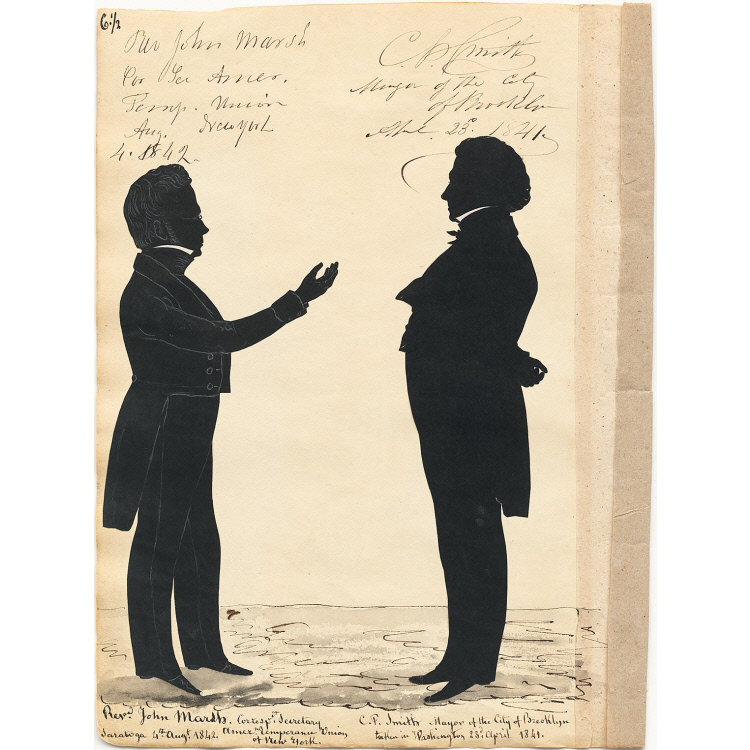 6 1/2
Rev John Marsh
Cor Sec Amer.
Temp. Union
Aug. New York
4. 1842.
C P Smith
Mayor of the City
of Brooklyn
23d. 1841.
Revd. John Marsh. Correspt. Secretary
Saratoga 4th Augt. 1842. Amer Temperance Union
of New York.
C.P. Smith Mayor of the City of Brooklyn
taken in Washington 23d. April 1841.